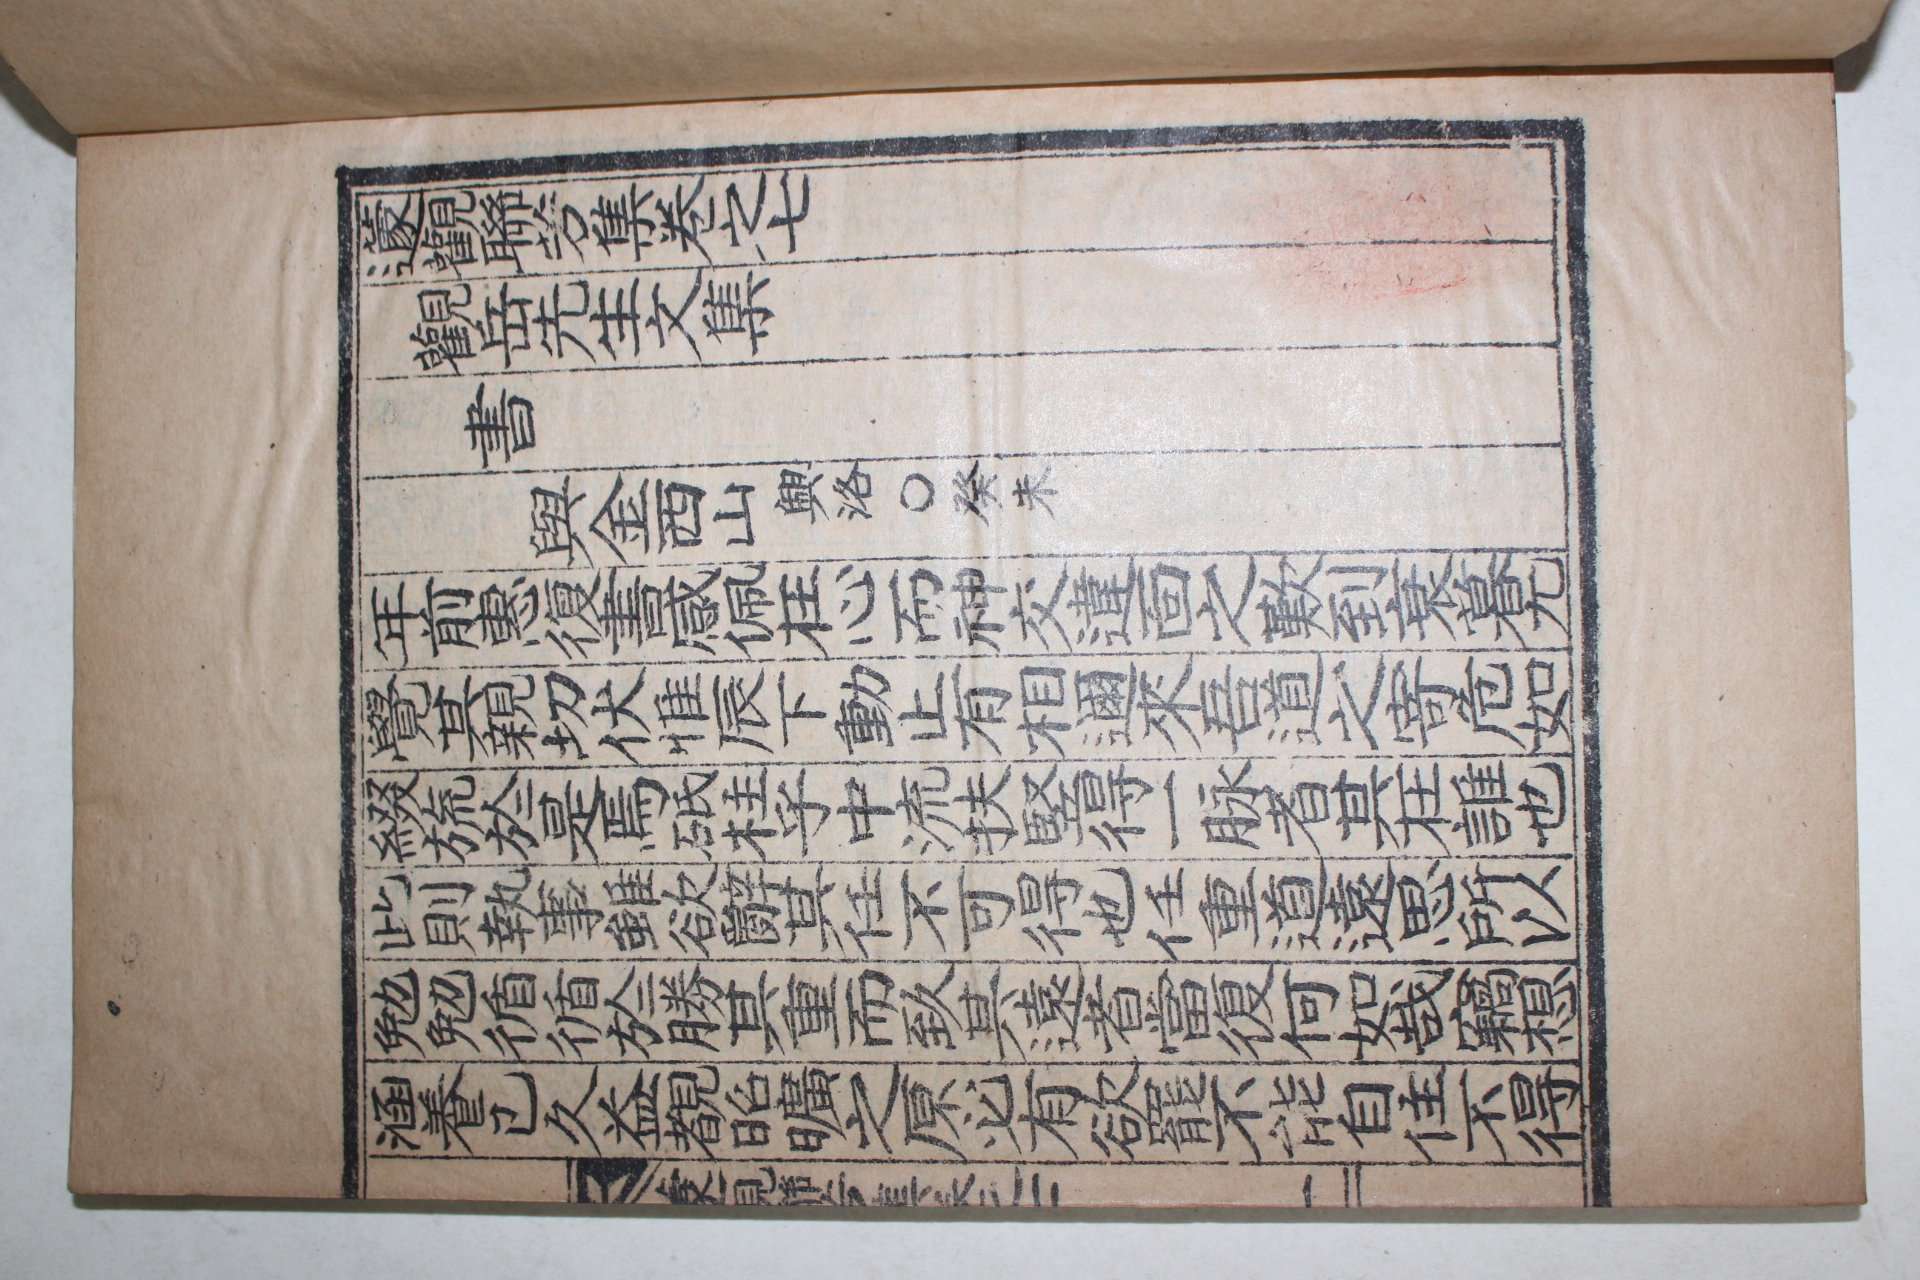 邃觀聯芳集卷之七
觀岳先生文集
書
與金西山興洛○癸未
年前惠復書感佩在心而神交違面之歎到衰暮尤
覺其親切伏惟辰下動止有相邇來吾道之寄危如
綴旒於是焉砥柱乎中流扶竪得一脉者其在誰也
此則執事雖欲辭其任不可得也任重道遠思所以
勉勉循循於勝其重而致其遠者當復何如哉竊想
涵養已久益覩昭曠之原必有欲罷不能自住不得